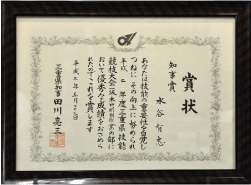 賞状
知事賞
水谷有志
あなたは技能の重要性を自覚し
つねにその向上に努められ
平成 年度三重県技能
競技大会 の部に
おいて優秀な成績をおさめら
れたのでこれを賞します
平成 年三月 日
三重県知事 田川亮三